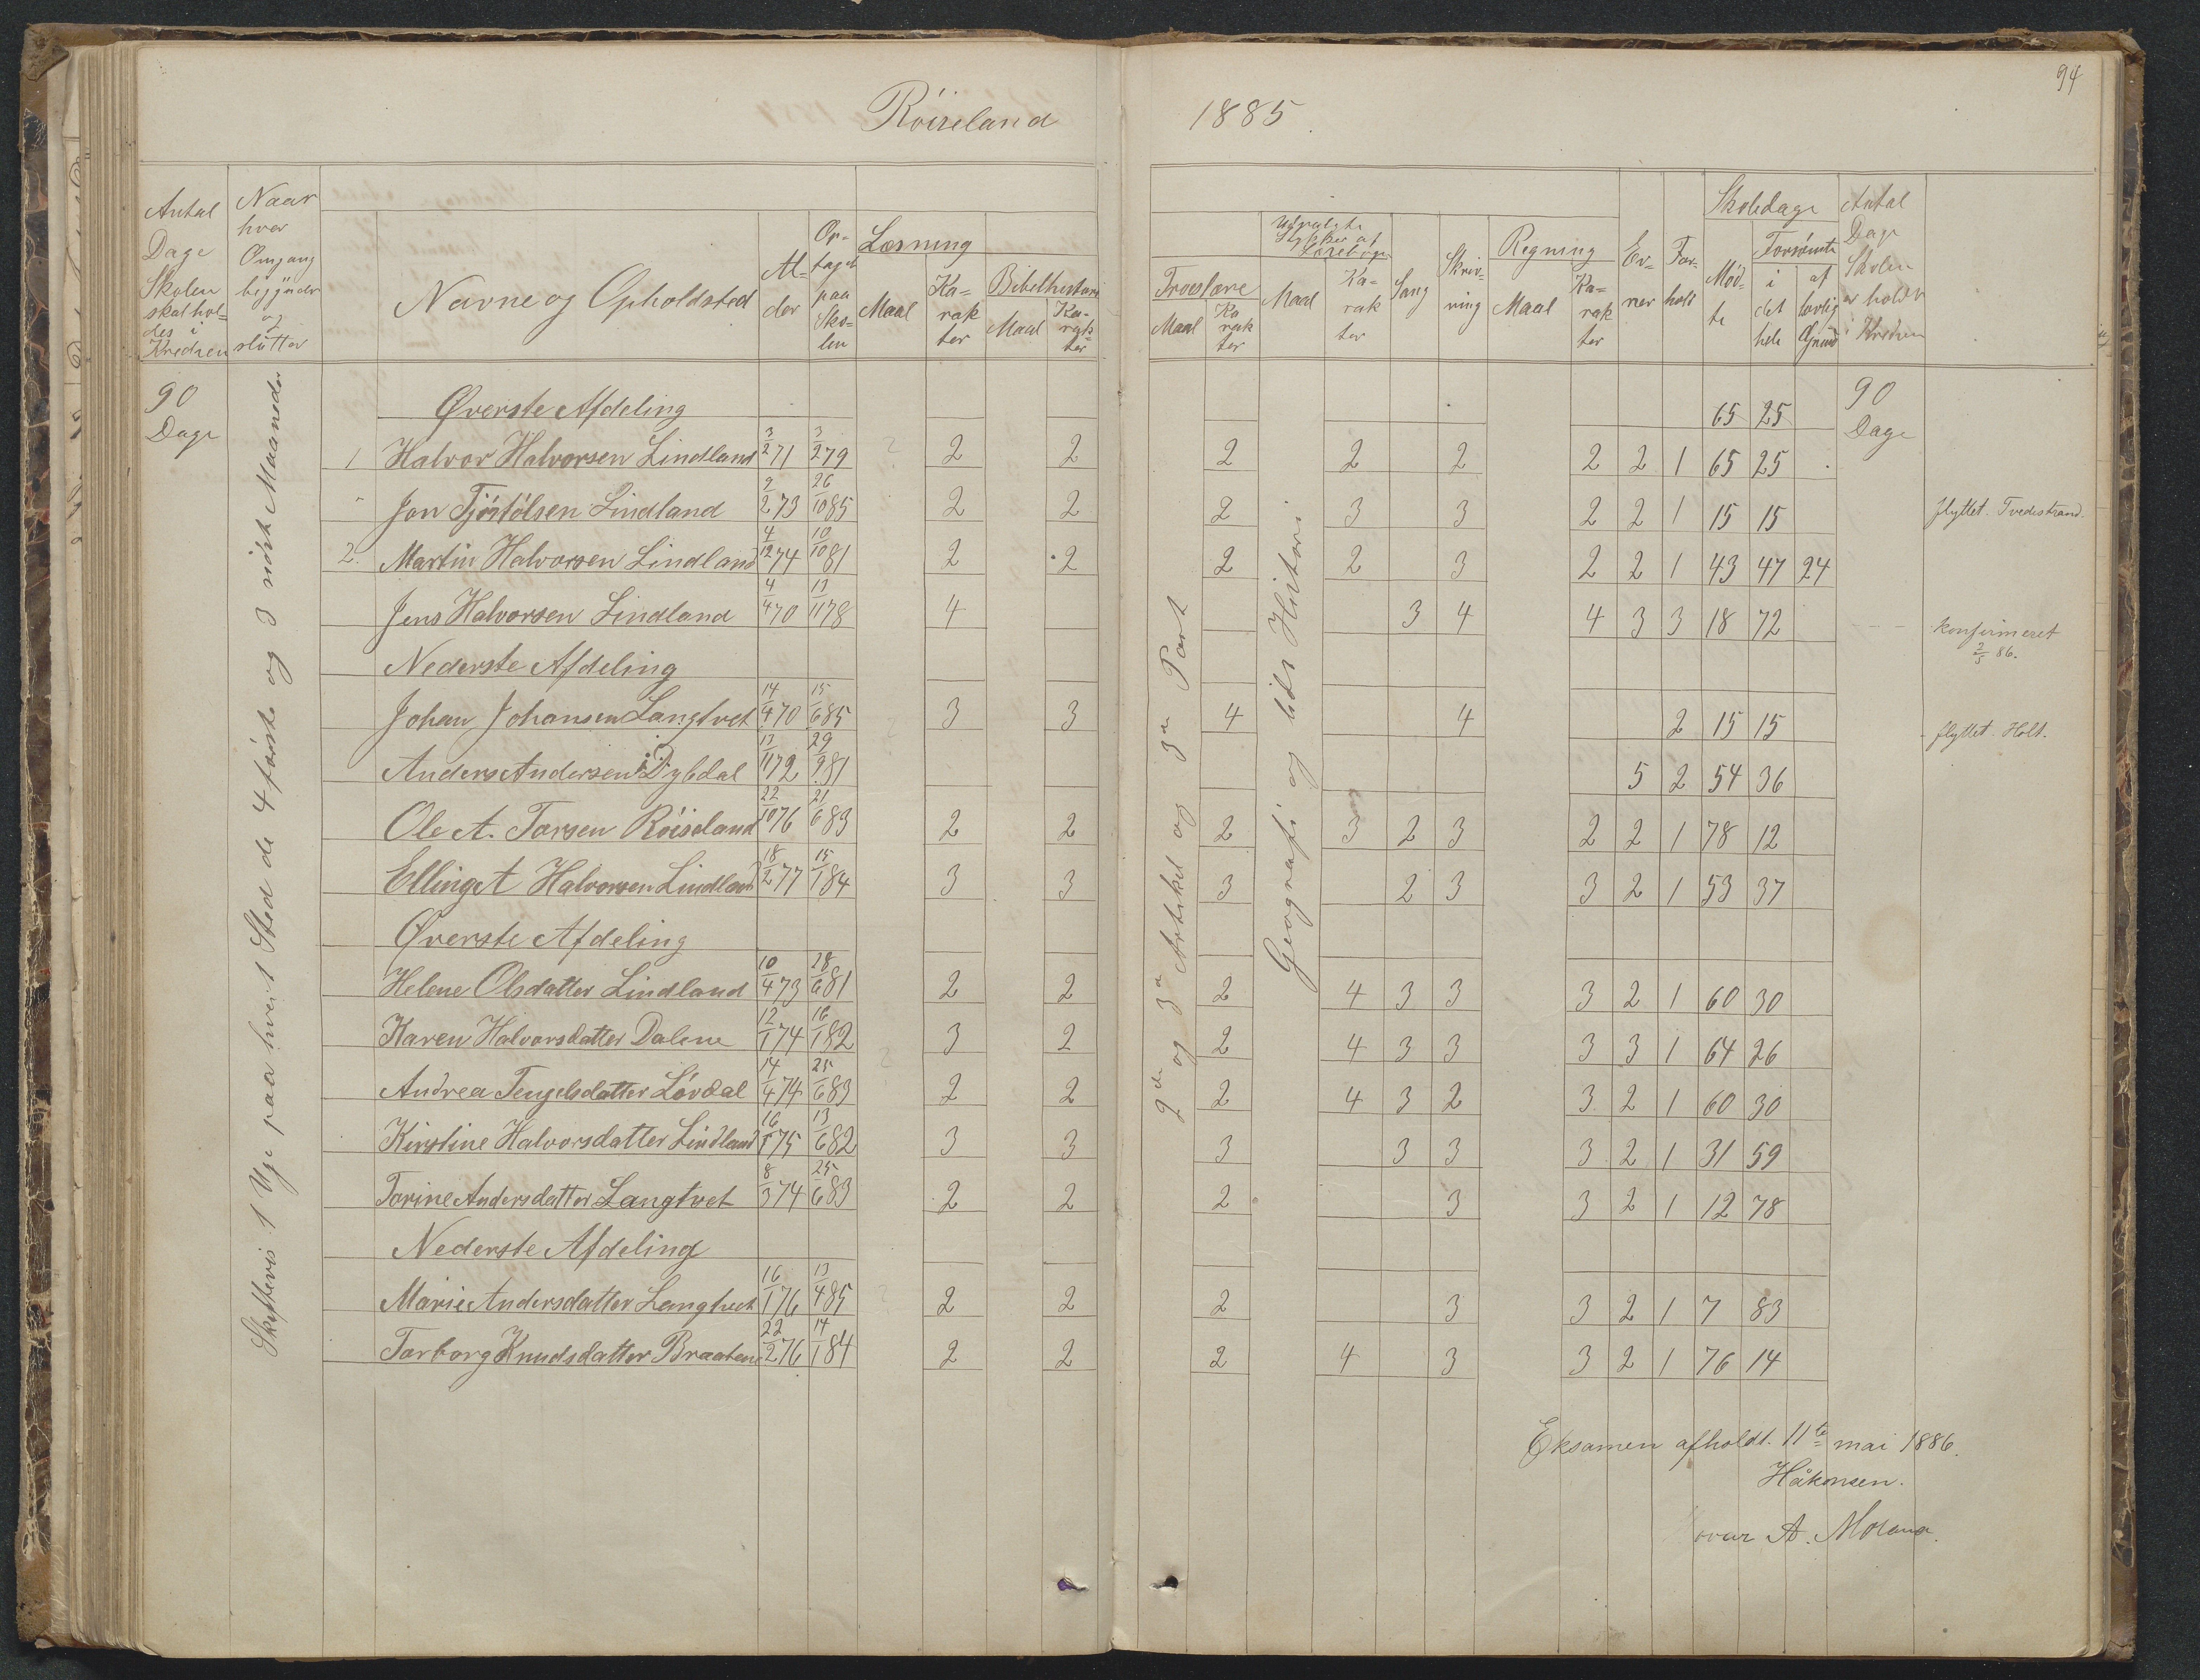 94
Röiseland 1885.
Antal Dage Skolen skal holdes i Kredsen
Naar hver Omgang begynder og slutter
Navne og Opholdsted
Alder
Optaget paa Skolen
Læsning
Maal
Karakter
Bibelhistorie
Maal
Karakter
Troeslære
Maal
Karakter
Udvalgte Stykker af Læsebogen
Maal
Karakter
Sang
Skrivning
Regning
Maal
Karakter
Evner
Forhold
Skoledage
Mødte
Forsømte
i det hele
af lovlig Grund
Antal Dage Skolen er holdt i Kredsen
90 Dage
Skiftevis 1 Uge paa hvert Sted de 4 første og 3 sidste Maaneder
2de og 3de Artikel og 3de Part
Geografi og lidt Historie
Øverste Afdeling 65 25 90 Dage
1 Halvor Halvorsen Lindland 3/2 71 3/2 79 2 2 2 2 2 2 2 1 65 25
Jon Tjöstölsen Lindland 9/2 73 26/10 85 2 2 2 3 3 2 2 1 15 15 flyttet Tvedestrand.
2. Martin Halvorsen Lindland 4/12 74 10/10 81 2 2 2 2 3 2 2 1 43 47 24
Jens Halvorsen Lindland 4/4 70 13/11 78 4 3 4 4 3 3 18 72 Konfirmeret 2/5 86.
Nederste Afdeling
Johan Johansen Langtvet 14/4 70 15/6 85 3 3 4 4 2 15 15 flyttet Holt.
Anders Andersen Dybdal 13/11 72 29/9 81 5 2 54 36
Ole A. Tarsen Röiseland 22/10 76 21/6 83 2 2 2 3 2 3 2 2 1 78 12
Elling A Halvorsen Lindland 18/2 77 15/1 84 3 3 3 2 3 3 2 1 53 37
Øverste Afdeling
Helene Olsdatter Lindland 10/4 73 28/6 81 2 2 2 4 3 3 3 2 1 60 30
Karen Halvorsdatter Dalene 12/1 74 16/1 82 3 2 2 4 3 3 3 3 1 64 26
Andrea Tengelsdatter Lövdal 14/4 74 25/6 83 2 2 2 4 3 2 3 2 1 60 30
Kirstine Halvorsdatter Lindland 16/1 75 13/6 82 3 3 3 3 3 3 2 1 31 59
Torine Andersdatter Langtvet 8/3 74 25/6 83 2 2 2 3 3 2 1 12 78
Nederste Afdeling
Marie Andersdatter Langtvet 16/1 76 13/4 85 2 2 2 3 3 2 1 7 83
Torborg Knudsdatter Braatene 22/2 76 14/1 84 2 2 2 4 3 3 2 1 76 14
Eksamen afholdt. 11te mai 1886.
Håkonsen.
A.